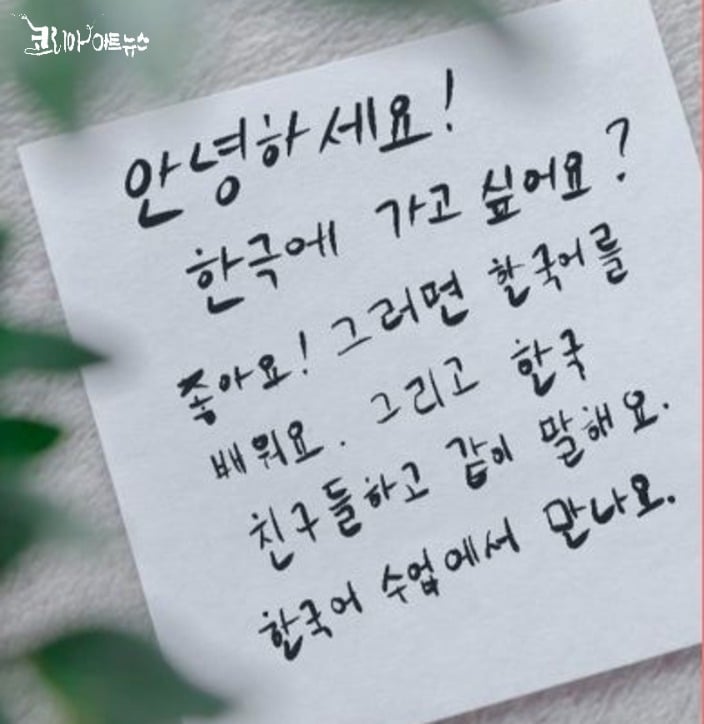 코리아아트뉴스
안녕하세요!
한국에 가고 싶어요?
좋아요! 그러면 한국어를
배워요. 그리고 한국
친구들하고 같이 말해요.
한국어 수업에서 만나요.